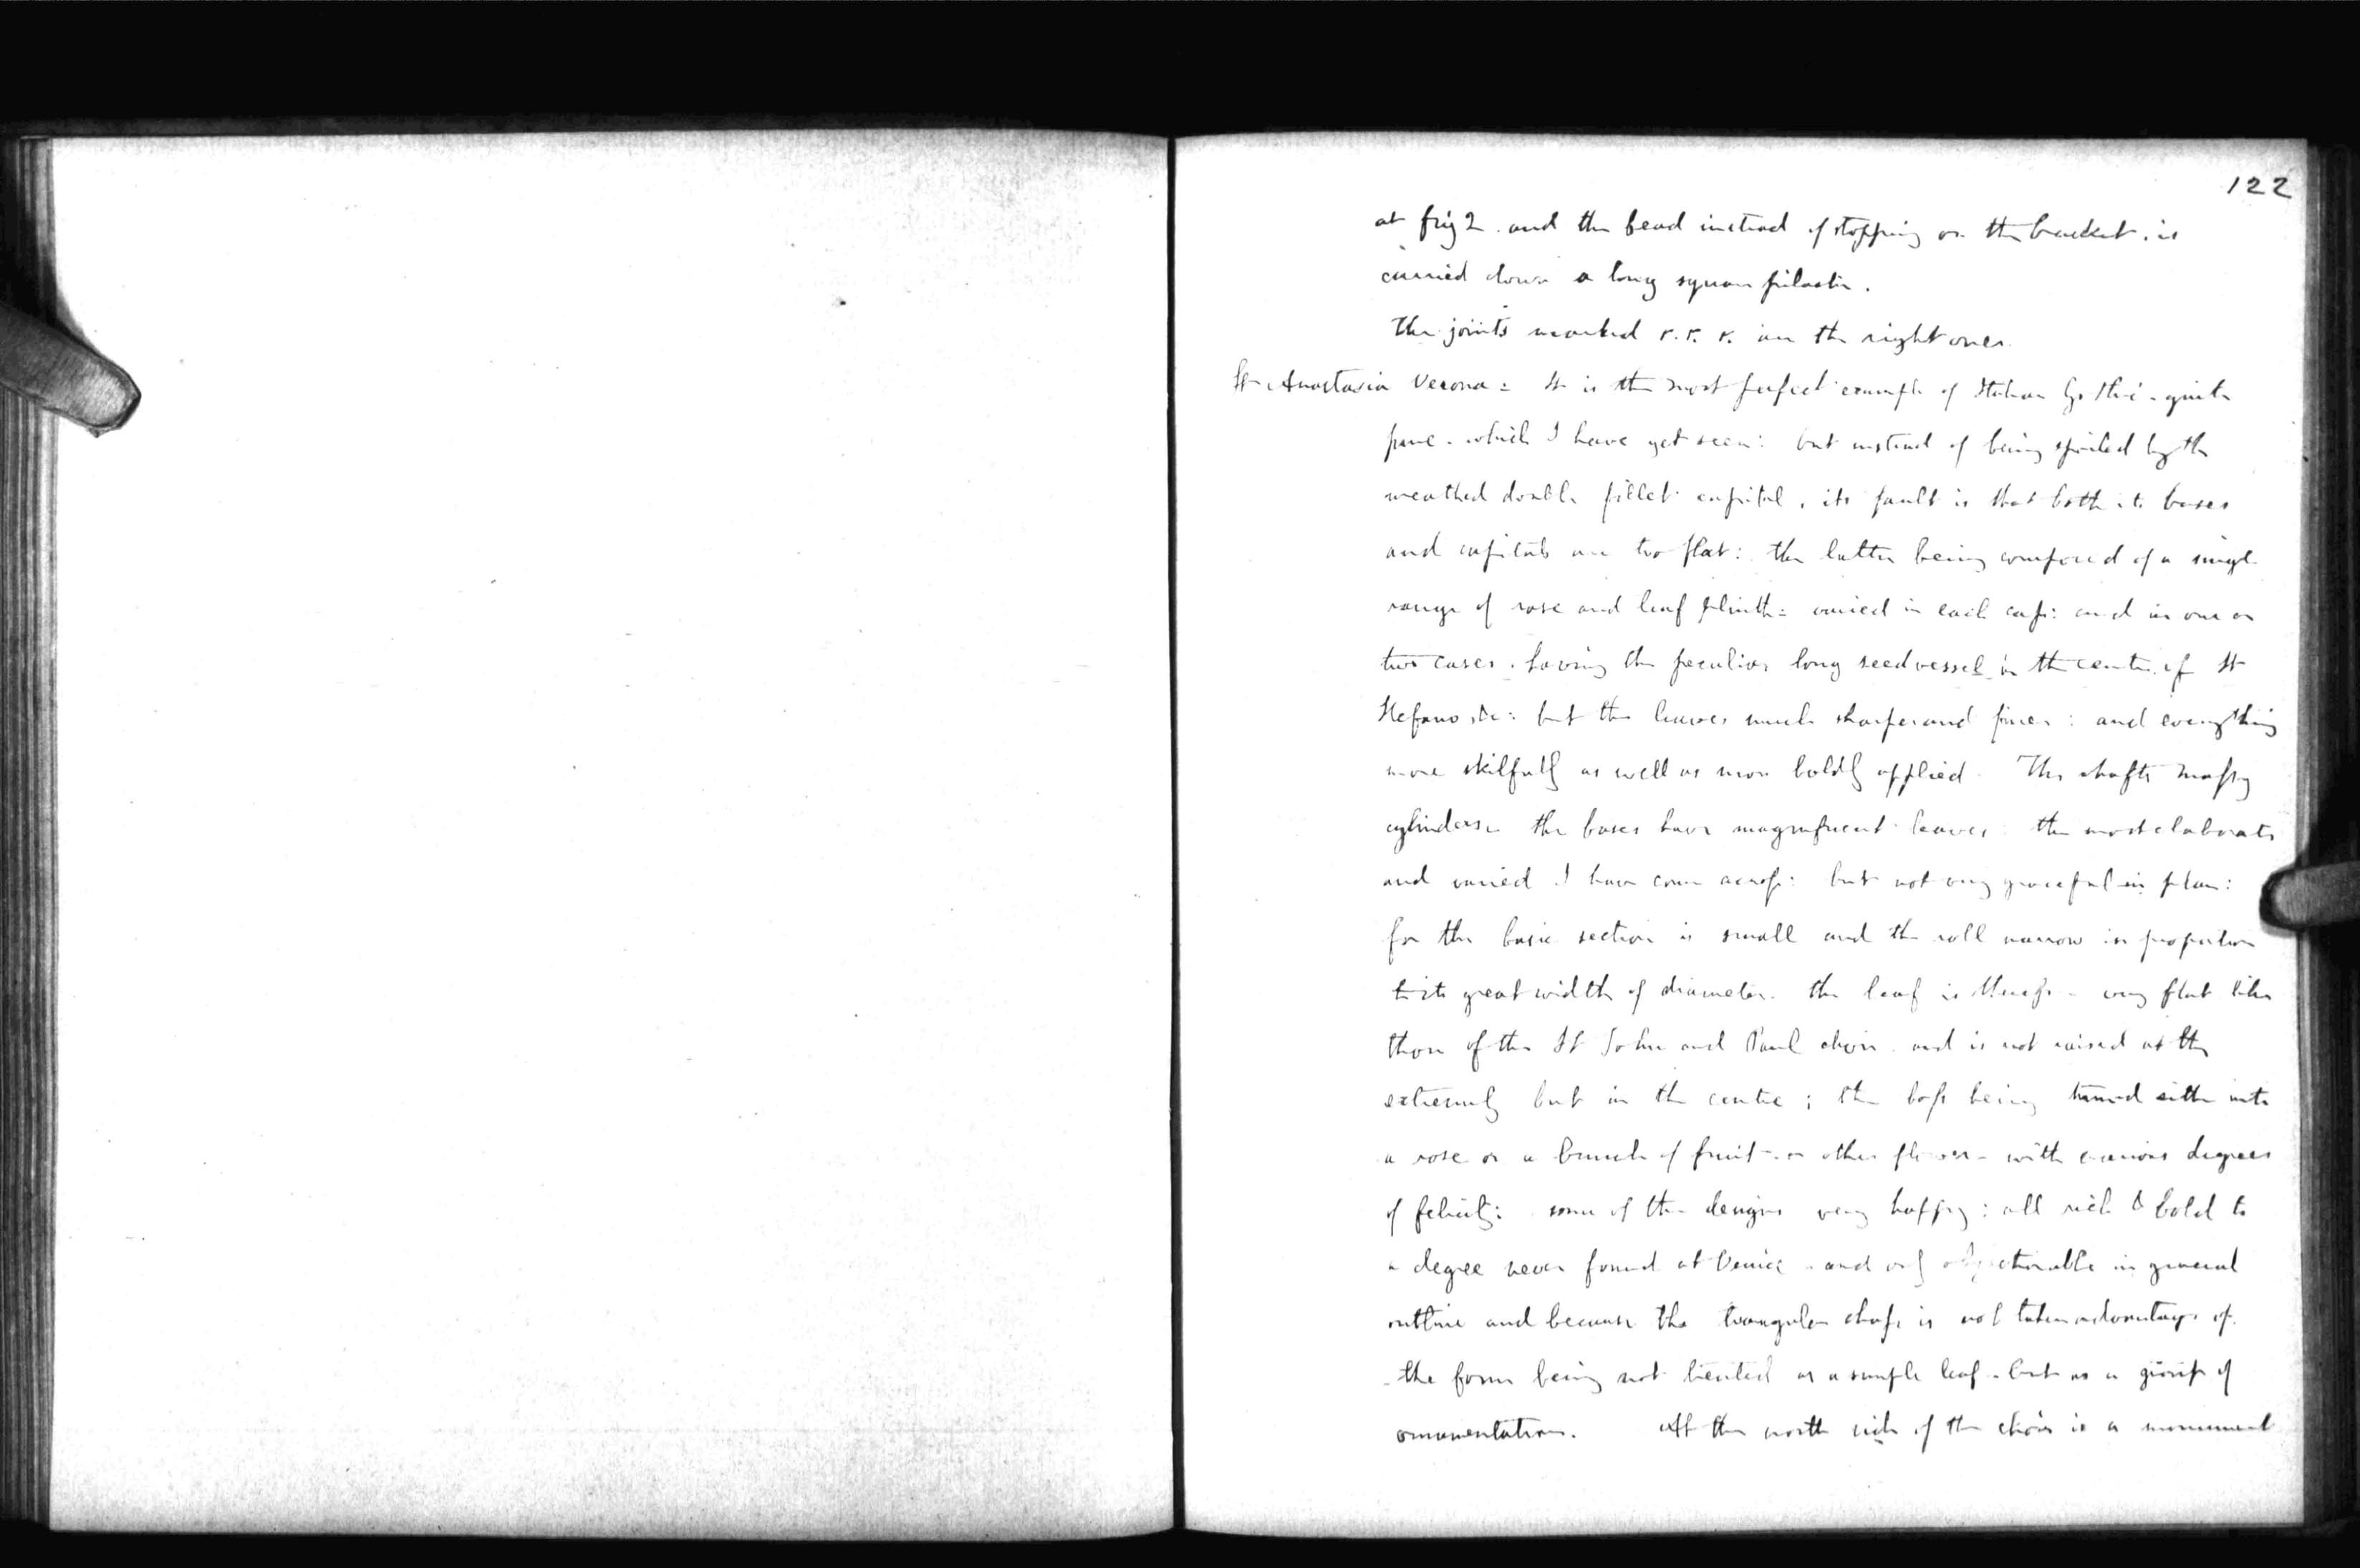 122
at fig 2. and the bead instead of stopping on the bracket, is
carried down a long square pilaster.
The joints marked r. r. r. are the right ones.
St Anastasia Verona = It is the most perfect example of Italian Gothic - quite
pure - which I have yet seen: but instead of being spoiled by the
wreathed double fillet capital, its fault is that both its bases
and capitals are too flat: the latter being composed of a single
range of rose and leaf plinth = varied in each cap: and in one or
two cases. having the peculiar long seedvessel in the centre of St
Stefano &c: but the leaves much sharper and finer: and everything
more skilfully as well as more boldly applied. The shafts massy
cylinders. the bases have magnificent leaves the most elaborate
and varied I have come across: but not very graceful in plan:
for the base section is small and the roll narrow in proportion
to its great width of diameter. the leaf is therefore very flat like
those of the St John and Paul choir. and is not raised at the
extremity but in the centre; the boss being turned either into
a rose or a bunch of fruit - or other flower - with various degrees
of felicity: some of the designs very happy: all rich & bold to
a degree never found at Venice - and only objectionable in general
outline and because the triangular shape is not taken advantage of.
- the form being not treated as a simple leaf - but as a group of
ornamentation. At the north side of the choir is a monument